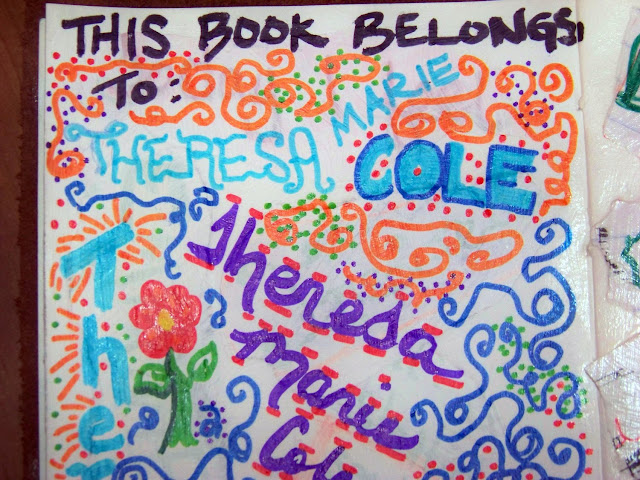 THIS BOOK BELONGS
TO:
THERESA
MARIE
COLE
Theresa
Marie
Cole
The